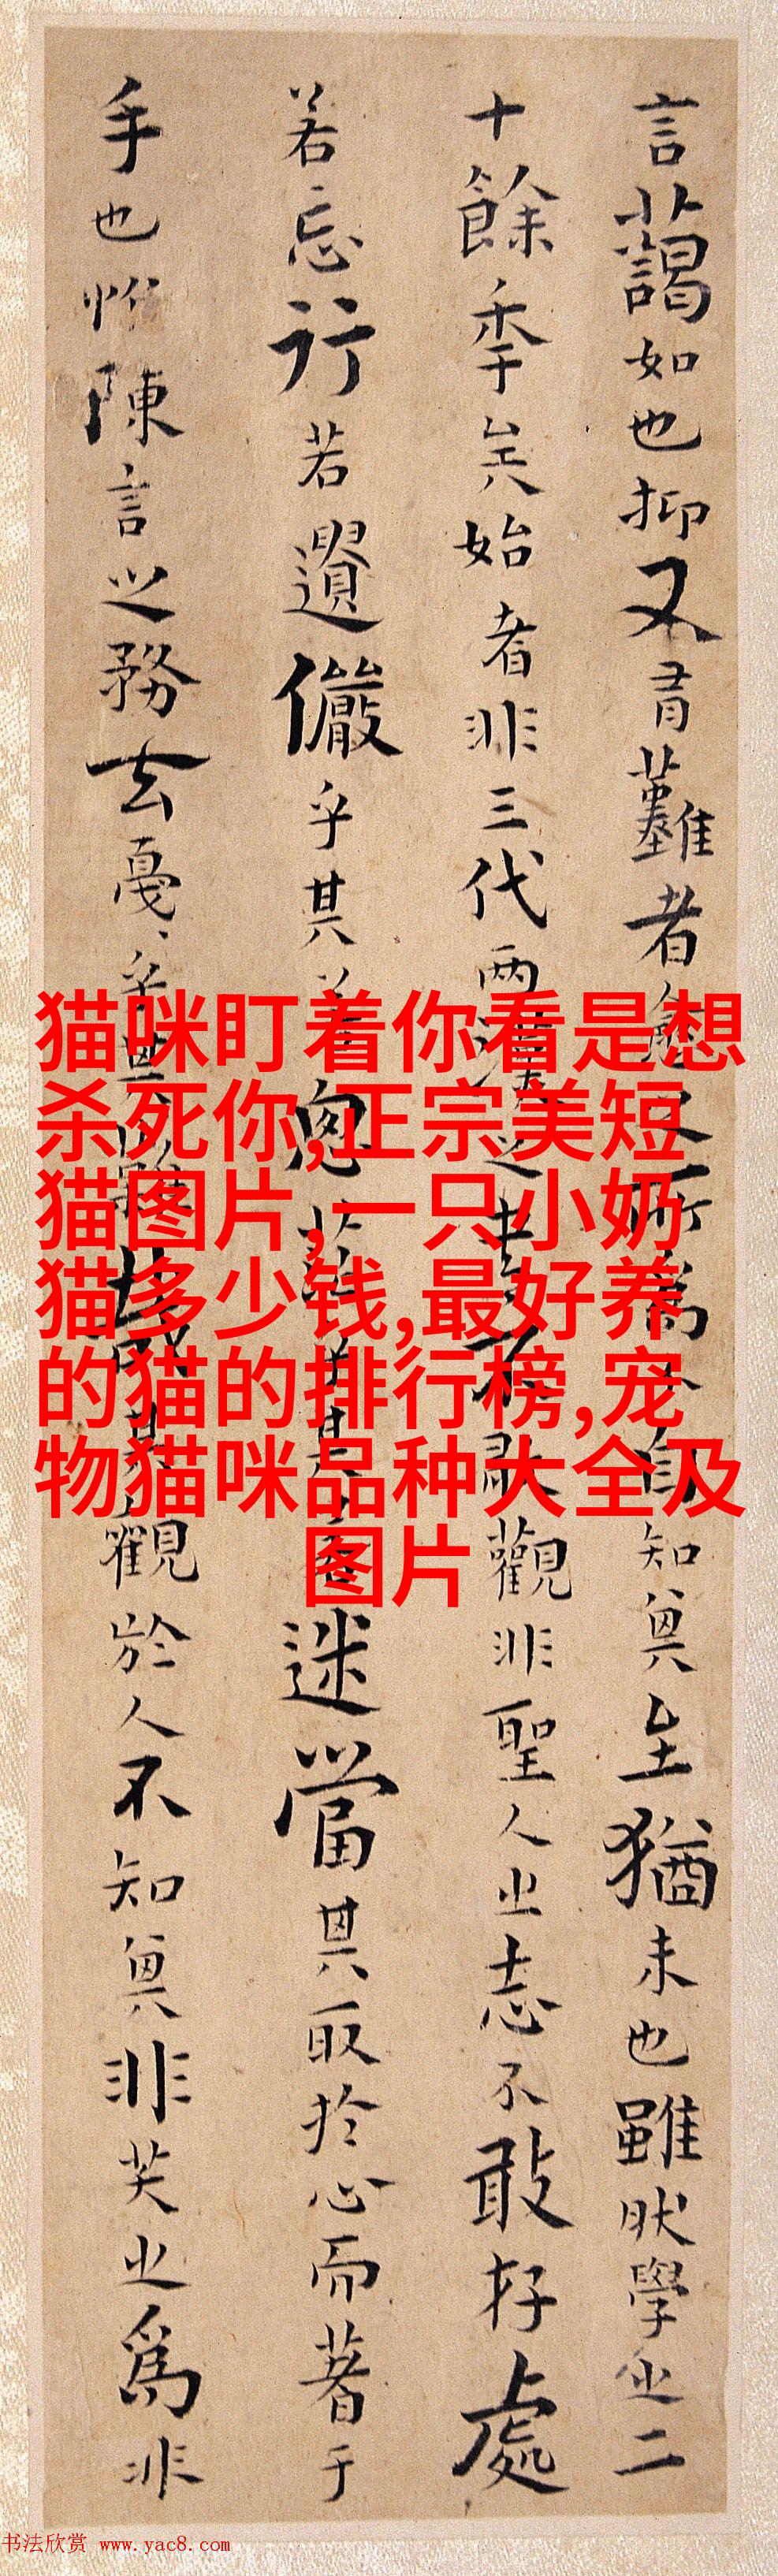 言藹如也抑又有難者愈之所爲不自知其至猶未也雖然學之二
十餘年矣始者非三代兩漢之書不敢觀非聖人之志不敢存處
若忘行若遺儼乎其若思茫乎其若迷當其取於心而著于
手也惟陳言之務去戛〻乎其難哉其觀於人不知其非笑之爲非
猫咪盯着你看是想
杀死你,正宗美短
猫图片,一只小奶
猫多少钱,最好养
的猫的排行榜,宠
物猫咪品种大全及
图片
书法欣赏 www.yac8.com